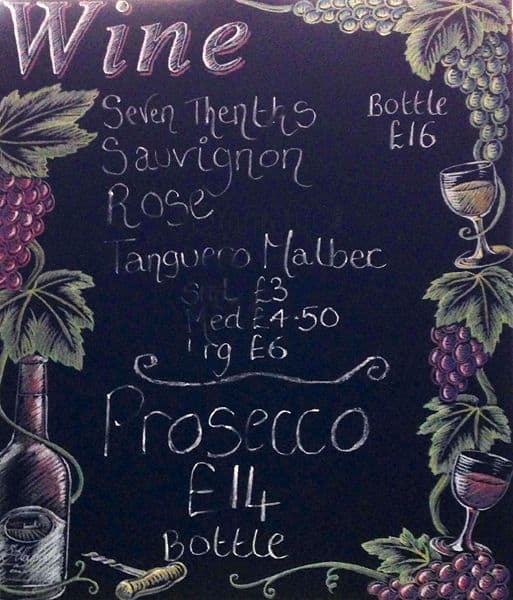 Wine
Seven Thenths
Sauvignon
Rose
Bottle
£16
Tanguero Malbec
Sml £3
Med £4.50
lrg £6
Prosecco
£14
Bottle